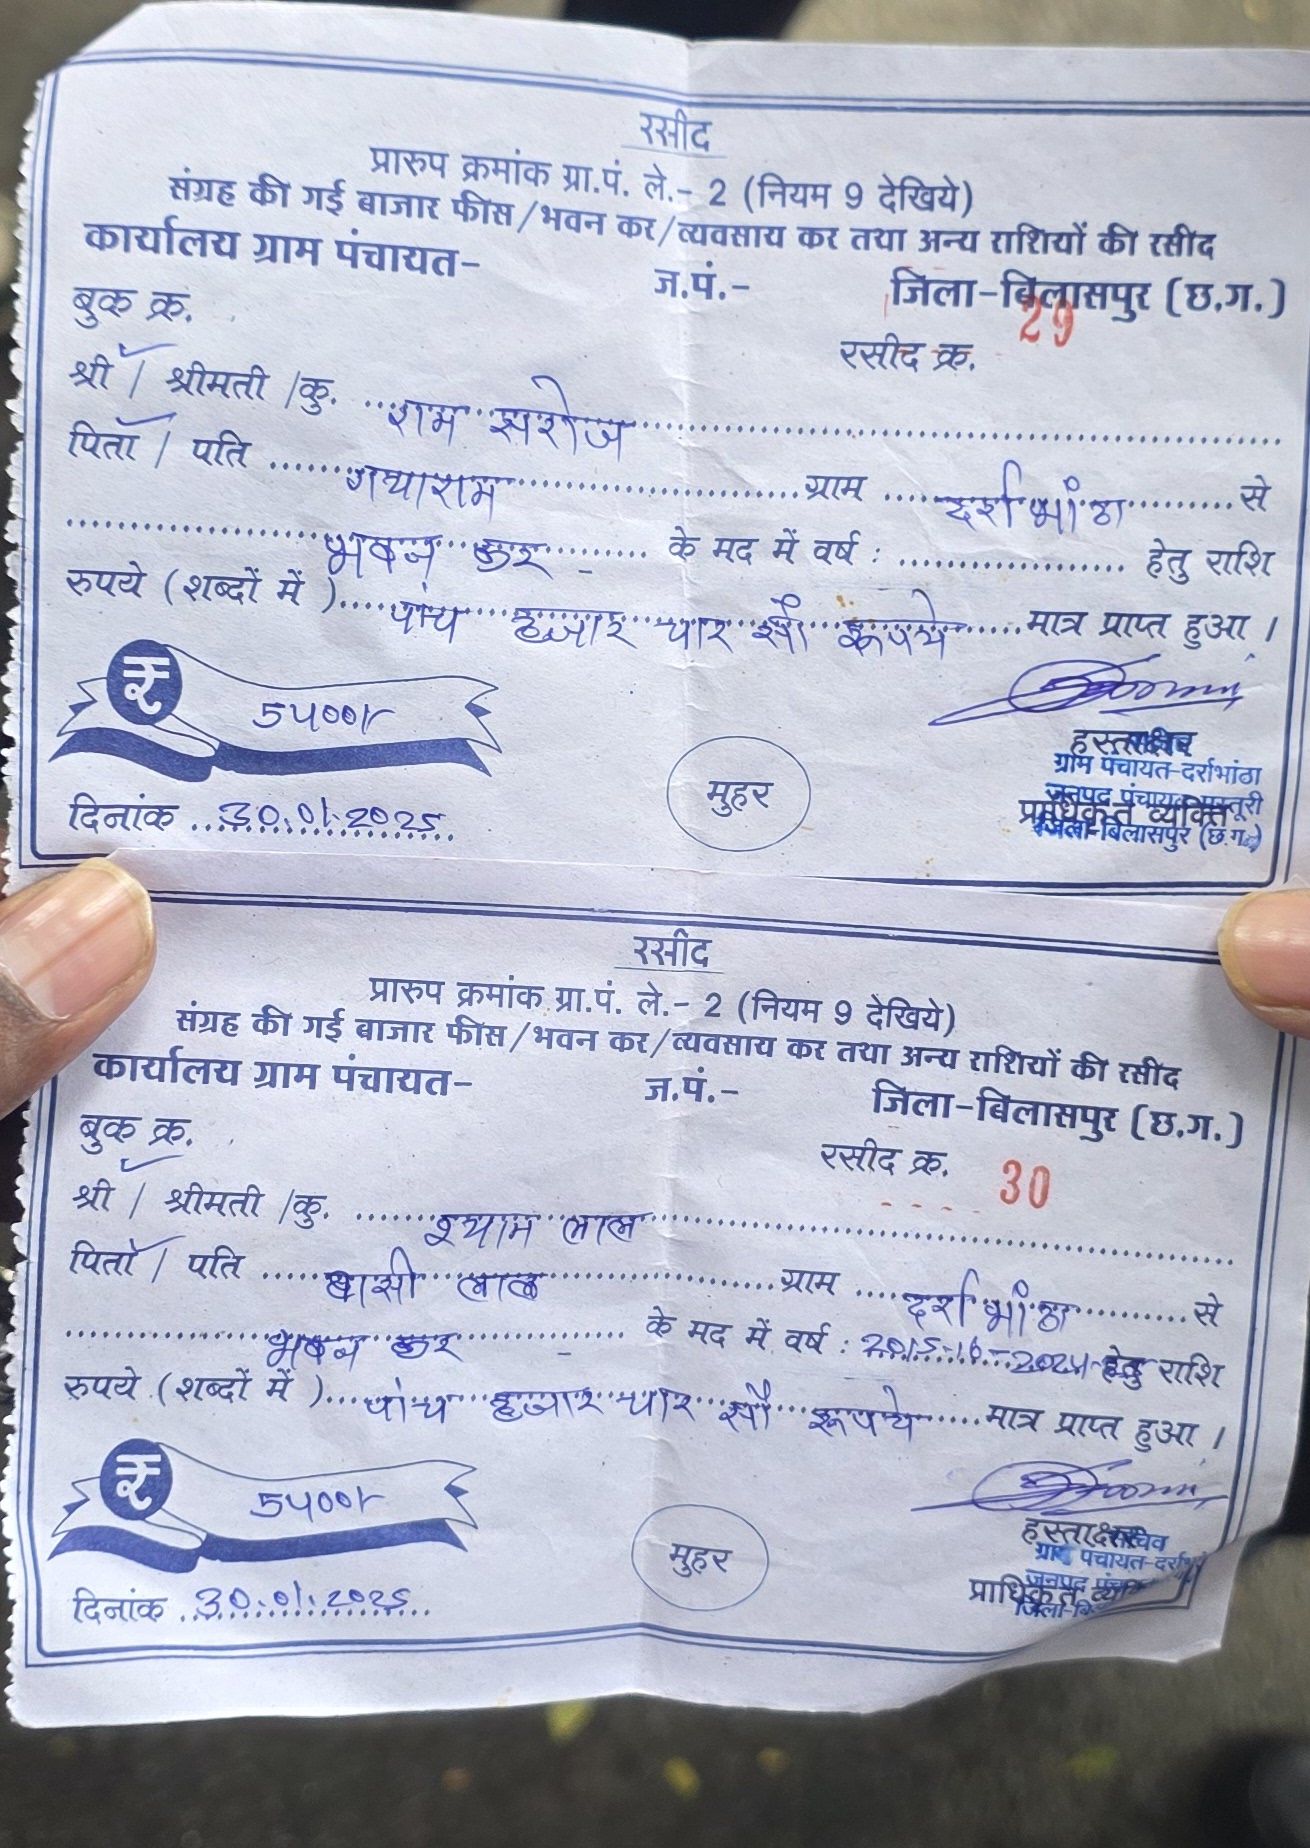 रसीद
प्रारुप क्रमांक ग्रा.पं. ले.- 2 (नियम 9 देखिये)
संग्रह की गई बाजार फीस/भवन कर/व्यवसाय कर तथा अन्य राशियों की रसीद
कार्यालय ग्राम पंचायत- ज.पं.- जिला-बिलासपुर (छ.ग.)
बुक क्र. रसीद क्र. 29
श्री / श्रीमती /कु. राम सरोज
पिता / पति गयाराम ग्राम दर्राभांठा से
भवन कर के मद में वर्ष : हेतु राशि
रुपये (शब्दों में) पांच हजार चार सौ रूपये मात्र प्राप्त हुआ ।
₹ 5400/-
मुहर
हस्ताक्षर
सचिव
ग्राम पंचायत-दर्राभांठा
जनपद पंचायत मस्तूरी
प्राधिकृत व्यक्ति
जिला-बिलासपुर (छ.ग.)
दिनांक 30.01.2025
रसीद
प्रारुप क्रमांक ग्रा.पं. ले.- 2 (नियम 9 देखिये)
संग्रह की गई बाजार फीस/भवन कर/व्यवसाय कर तथा अन्य राशियों की रसीद
कार्यालय ग्राम पंचायत- ज.पं.- जिला-बिलासपुर (छ.ग.)
बुक क्र. रसीद क्र. 30
श्री / श्रीमती /कु. श्याम लाल
पिता / पति बासी लाल ग्राम दर्राभांठा से
भवन कर के मद में वर्ष : 2015-16-2024 हेतु राशि
रुपये (शब्दों में) पांच हजार चार सौ रूपये मात्र प्राप्त हुआ ।
₹ 5400/-
मुहर
हस्ताक्षर
सचिव
ग्राम पंचायत-
जनपद
प्राधिकृत
दिनांक 30.01.2025